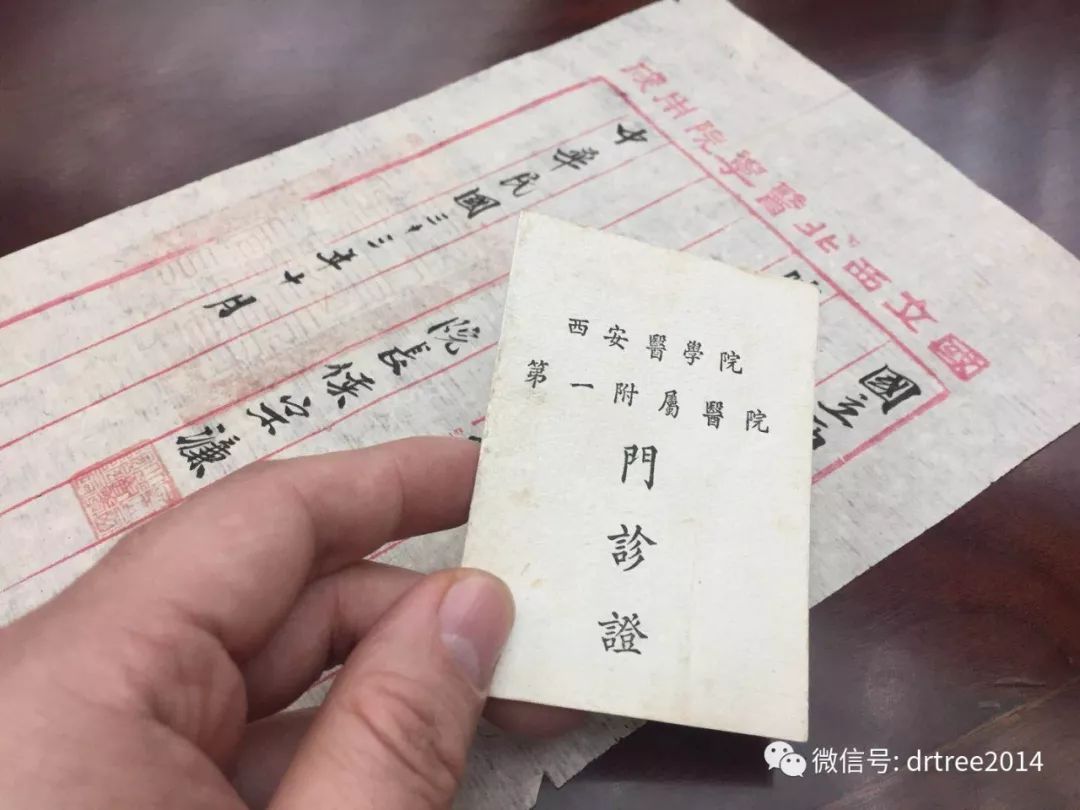 國立西北醫學院用牋
國立
院長侯宗濂
中華民國三十三年十月
西安醫學院
第一附屬醫院
門診證
微信号: drtree2014